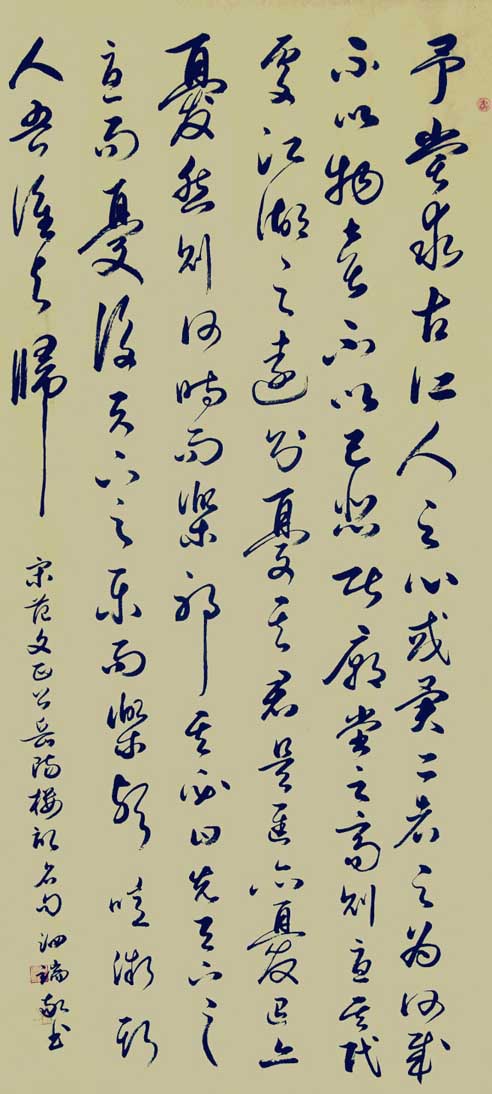 予嘗求古仁人之心或異二者之為何哉
不以物喜不以己悲居廟堂之高則憂其民
處江湖之遠則憂其君是進亦憂退亦
憂然則何時而樂耶其必曰先天下之
憂而憂後天下之樂而樂歟噫微斯
人吾誰與歸
宋范文正公岳陽樓記名句 敬书